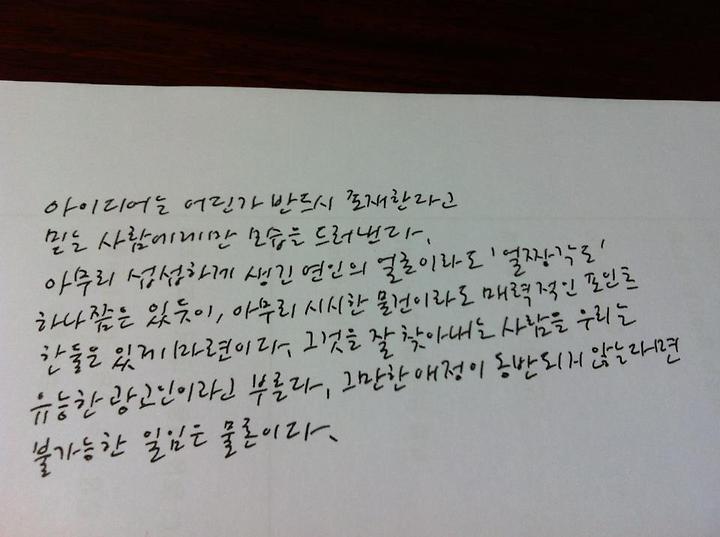 아이디어는 어딘가 반드시 존재한다고
믿는 사람에게만 모습을 드러낸다.
아무리 섭섭하게 생긴 연인의 얼굴이라도 '얼짱각도'
하나쯤은 있듯이, 아무리 시시한 물건이라도 매력적인 포인트
한둘은 있게 마련이다. 그것을 잘 찾아내는 사람을 우리는
유능한 광고인이라고 부른다. 그만한 애정이 동반되지 않는다면
불가능한 일임은 물론이다.